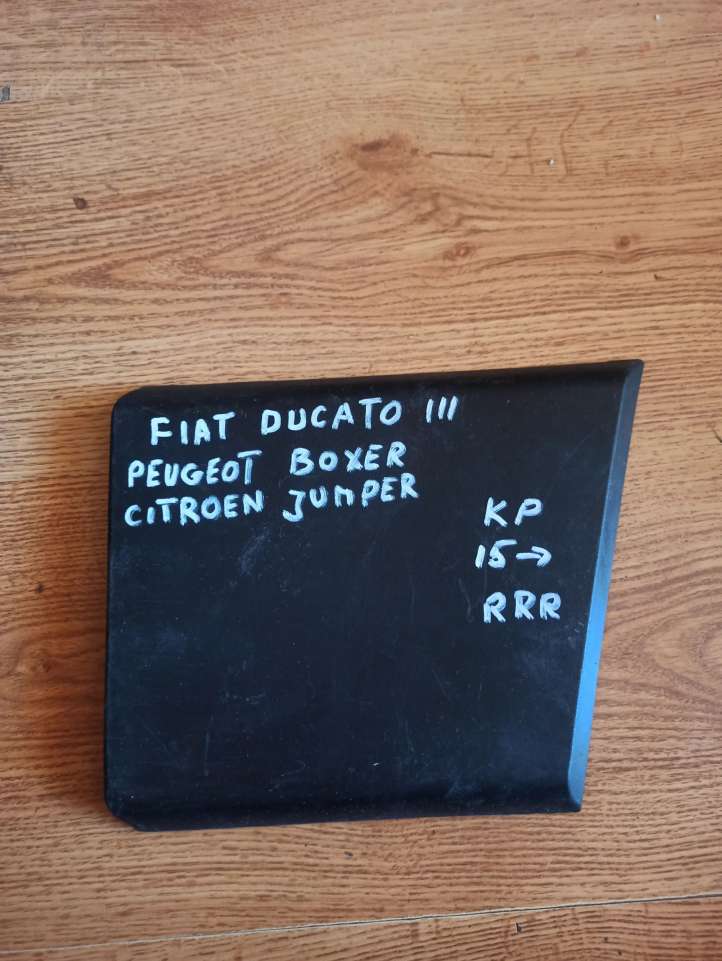 FIAT DUCATO III
PEUGEOT BOXER
CITROEN JUMPER
KP
15→
RRR